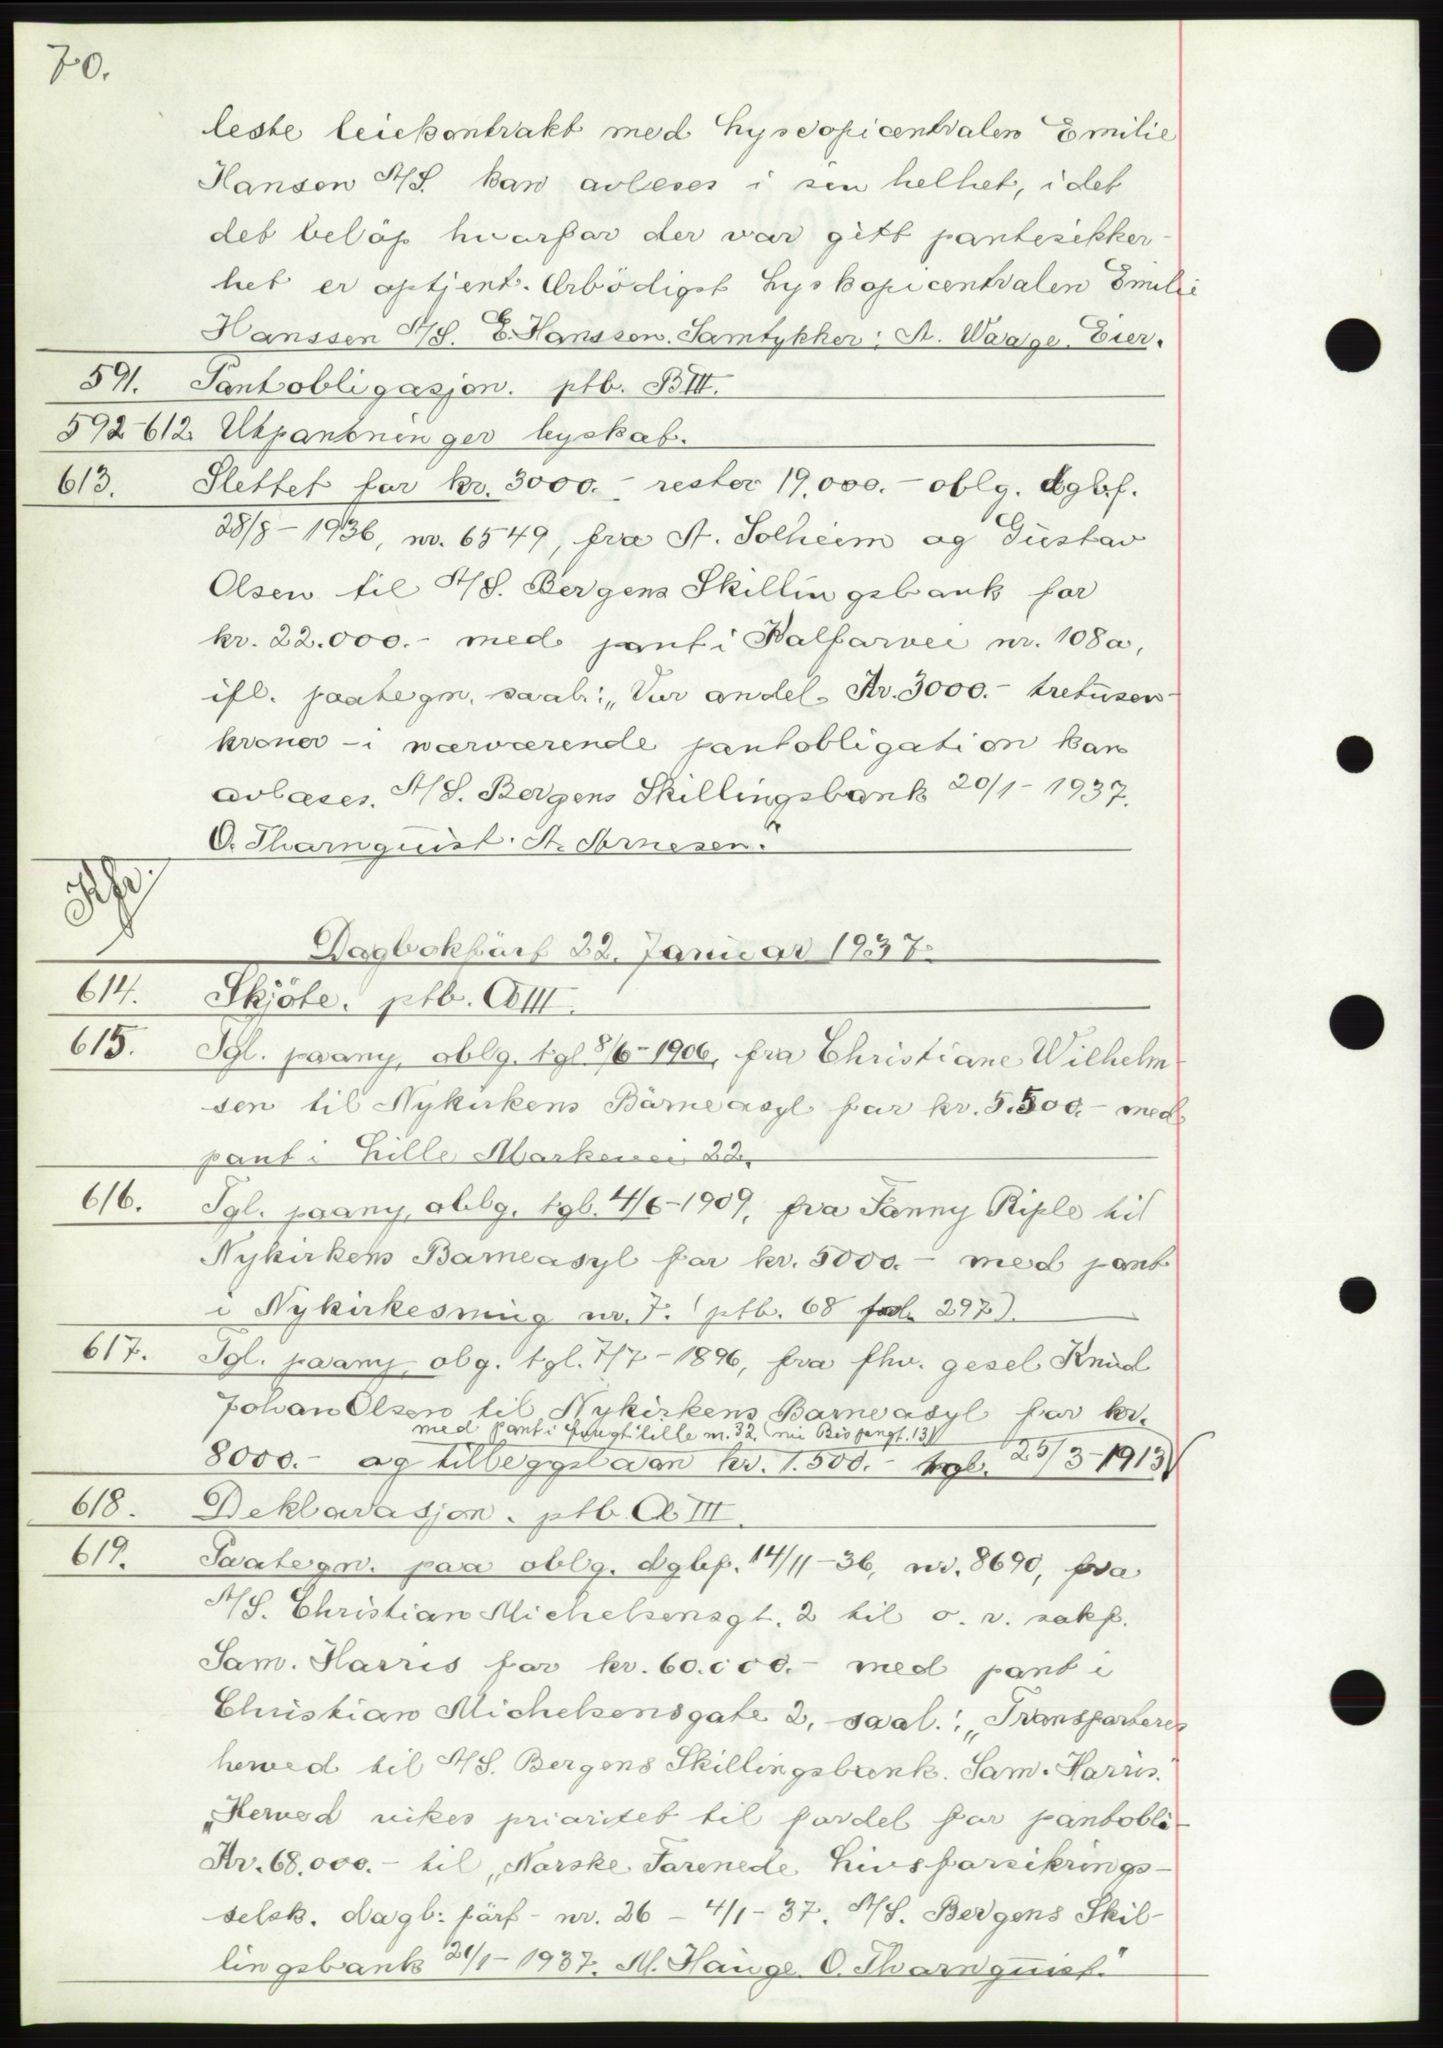 70.
leste leiekontrakt med Lyscopicentralen Emilie
Hanson A/S. kan avleses i sin helhet, idet
det beløp hvorfor der var gitt pantesikker-
het er optjent. Ærbödigst Lyskopicentralen Emilie
Hanssen A/S. E. Hanssen. Samtykker: A. Waage. Eier.
591. Pantobligasjon. ptb. B III.
592-612. Utpantninger byskat.
613. Slettet for kr. 3000.- rester 19.000.- oblg. dgbf.
28/8-1936, nr. 6549, fra A. Solheim og Gustav
Olsen til A/S. Bergens Skillingsbank for
kr. 22.000.- med pant i Kalfarvei nr. 108a,
ifl. paategn. saal.: „Vor andel- Kr. 3000.- tretusen
kroner - i nærværende pantobligation kan
avlæses. A/S. Bergens Skillingsbank 20/1-1937.
O. Thornquist. A. Arnesen."
Dagbokført 22. Januar 1937.
614. Skjöte. ptb. A III.
615. Tgl. paany, oblg. tgl. 8/6-1906, fra Christiane Wilhelm-
sen til Nykirkens Barneasyl for kr. 5.500.- med
pant i Lille Markevei 22.
616. Tgl. paany, oblg. tgl. 4/6-1909, fra Fanny Riple til
Nykirkens Barneasyl for kr. 5000.- med pant
i Nykirkesmug nr. 7. (ptb. 68 fol. 297).
617. Tgl. paany, obg. tgl. 7/7-1896, fra fhv. gesel Knud
Johan Olsen til Nykirkens Barneasyl for kr.
med pant i nr. 32,
8000.- og tilleggslaan kr. 1.500.- tgl. 25/3-1913
618. Deklarasjon. ptb. A III.
619. Paategn. paa oblg. dgbf. 14/11-36, nr. 8690, fra
A/S. Christian Michelsensgt. 2 til o. r. sakf.
Sam. Harris for kr. 60.000.- med pant i
Christian Michelsensgate 2, saal.: „Transporteres
herved til A/S. Bergens Skillingsbank. Sam. Harris."
„Herved vikes prioritet til fordel for pantobli-
Kr. 68.000.- til „Norske Forenede Livsforsikrings-
selsk. dagb: förf - nr. 26 - 4/1-37. A/S. Bergens Skil-
lingsbank 21/1-1937. M. Hauge. O. Thornquist."